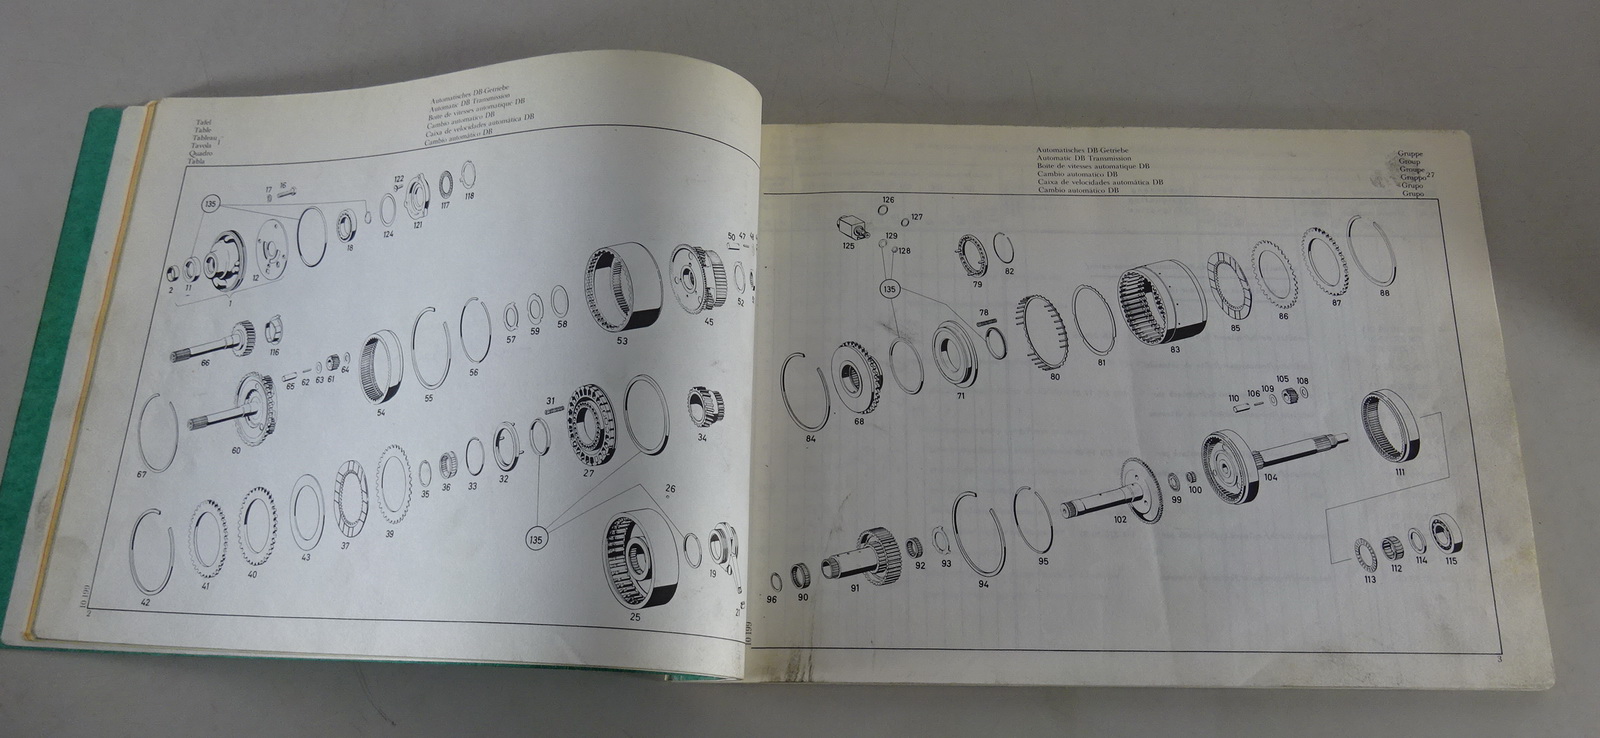 Tafel
Table
Tableau 1
Tavola
Quadro
Tabla
Automatisches DB-Getriebe
Automatic DB Transmission
Boite de vitesses automatique DB
Cambio automatico DB
Caixa de velocidades automática DB
Cambio automático DB
135
17 16
122
118
117
121
124
18
12
2 11
1
50 47
52
45
53
58
59
57
56
55
54
64
61
63
62
65
116
66
60
67
31
34
27
32
33
36
35
39
37
43
40
41
42
26
135
19
25
10 199
2
Automatisches DB-Getriebe
Automatic DB Transmission
Boite de vitesses automatique DB
Cambio automatico DB
Caixa de velocidades automática DB
Cambio automático DB
Gruppe
Group
Groupe
Gruppo 27
Grupo
Grupo
126
127
125
129
128
135
79
82
78
88
87
86
85
83
81
80
71
68
84
110 106 109 105 108
111
104
100
99
102
95
94
93
92
91
90
96
113 112 114 115
10 199
3